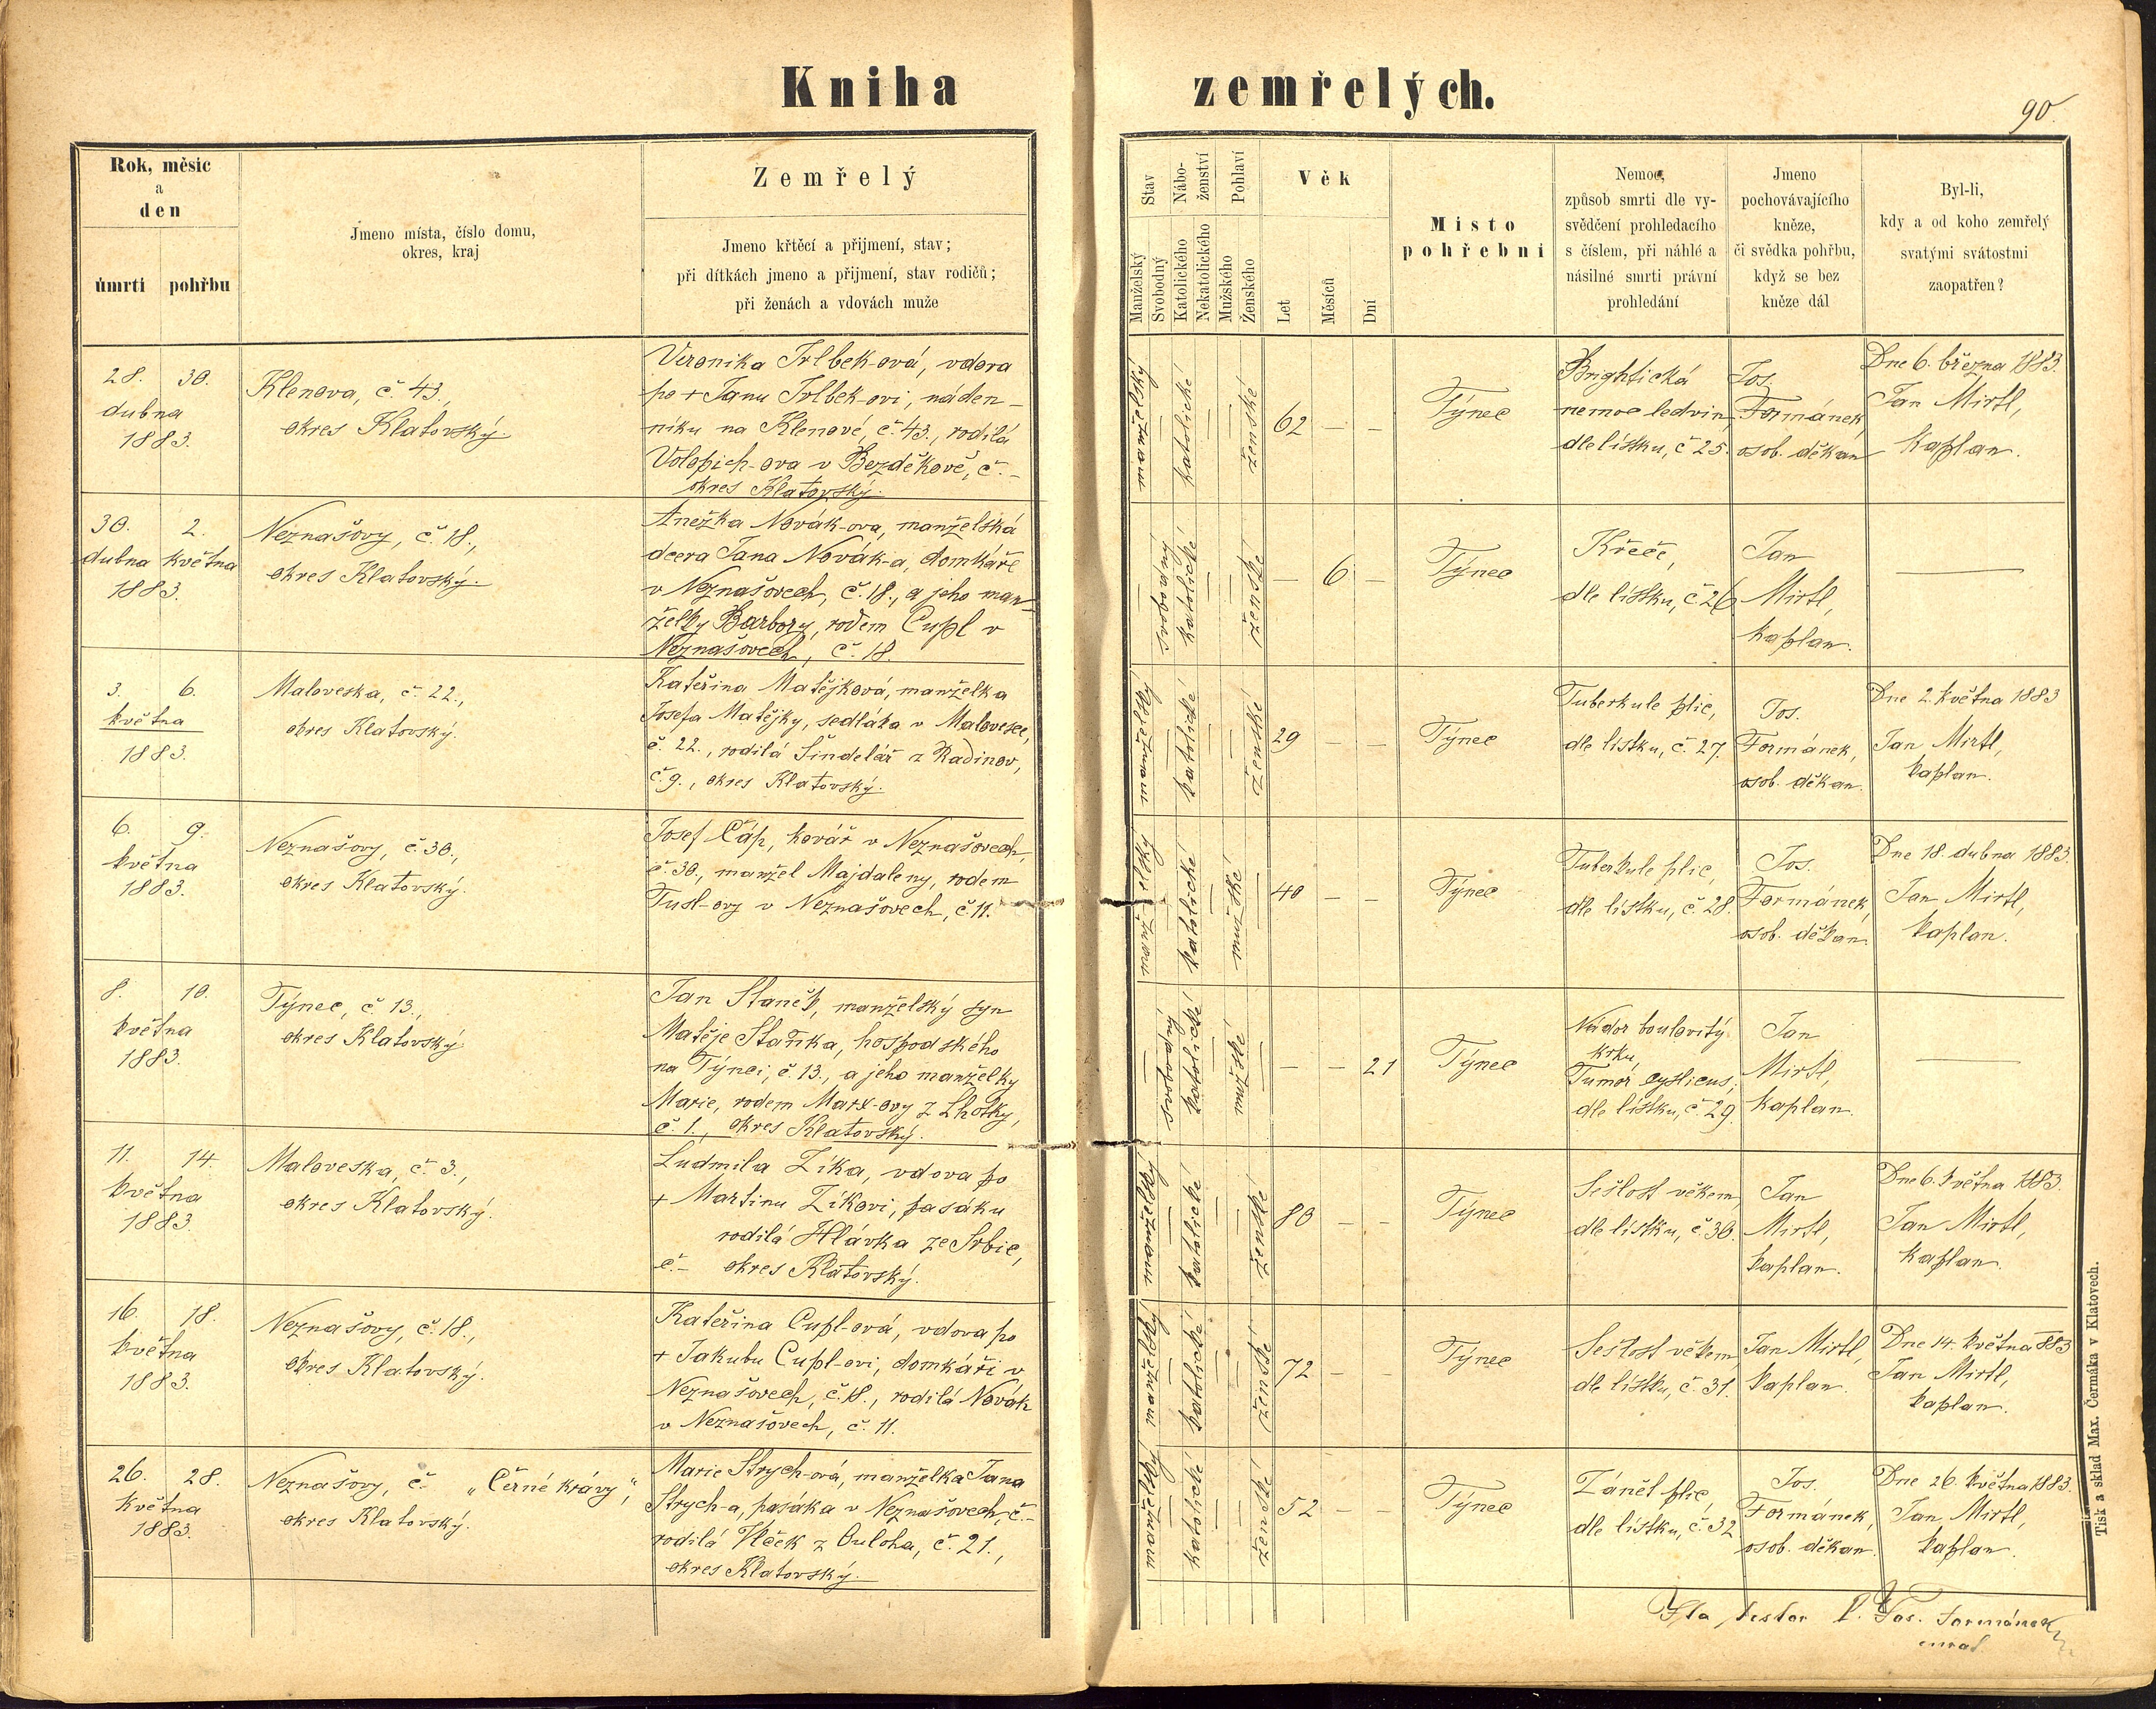 Kniha zemřelých.
90.
Rok, měsíc
a
den
úmrtí
pohřbu
Jmeno místa, číslo domu,
okres, kraj
Zemřelý
Jmeno křtěcí a přijmení, stav;
při dítkách jmeno a přijmení, stav rodičů;
při ženách a vdovách muže
Stav
Manželský
Svobodný
Nábo-
ženství
Katolického
Nekatolického
Pohlaví
Mužského
Ženského
Věk
Let
Měsíců
Dní
Místo
pohřební
Nemoc,
způsob smrti dle vy-
svědčení prohledacího
s číslem, při náhlé a
násilné smrti právní
prohledání
Jmeno
pochovávajícího
kněze,
či svědka pohřbu,
když se bez
kněze dál
Byl-li,
kdy a od koho zemřelý
svatými svátostmi
zaopatřen?
28. 30.
dubna
1883.
Klenova, č. 43.,
okres Klatovský.
Veronika Trlbek-ová, vdova
po + Janu Trlbek-ovi, náden-
níku na Klenové, č. 43., rodilá
Volopich-ova v Bezděkově, č. -
okres Klatovský.
manželský
katolické
ženské
62 — —
Týnec
Brightická
nemoc ledvin,
dle lístku, č. 25.
Jos.
Formánek,
osob. děkan
Dne 6. března 1883.
Jan Mirtl,
kaplan.
30. 2.
dubna května
1883.
Neznašovy, č. 18.,
okres Klatovský.
Anežka Novák-ova, manželská
dcera Jana Novák-a, domkáře
v Neznašovech, č. 18., a jeho man-
želky Barbory, rodem Cupl v
Neznašovech, č. 18.
svobodný
katolické
ženské
— 6 —
Týnec
Křeče,
dle lístku, č. 26
Jan
Mirtl,
kaplan.
—
3. 6.
května
1883.
Maloveska, č. 22.,
okres Klatovský.
Kateřina Matějková, manželka
Josefa Matějky, sedláka v Malovesce,
č. 22., rodilá Šindelář z Radinov,
č. 9., okres Klatovský.
manželský
katolické
ženské
29 — —
Týnec
Tuberkule plic,
dle lístku, č. 27.
Jos.
Formánek,
osob. děkan.
Dne 2. května 1883
Jan Mirtl,
kaplan.
6. 9.
května
1883.
Neznašovy, č. 30.,
okres Klatovský.
Josef Čáp, kovář v Neznašovech,
č. 30., manžel Majdaleny, rodem
Tusl-ovy v Neznašovech, č. 11.
manželský
katolické
mužské
40 — —
Týnec
Tuberkule plic,
dle lístku, č. 28.
Jos.
Formánek,
osob. děkan.
Dne 18. dubna 1883.
Jan Mirtl,
kaplan.
8. 10.
května
1883.
Týnec, č. 13.,
okres Klatovský
Jan Staněk, manželský syn
Matěje Staňka, hospodského
na Týnci, č. 13., a jeho manželky
Marie, rodem Marx-ovy z Lhotky,
č. 1., okres Klatovský.
svobodný
katolické
mužské
— — 21
Týnec
Nádor boulovitý
krku,
Tumor cysticus,
dle lístku, č. 29.
Jan
Mirtl,
kaplan.
—
11. 14.
května
1883.
Maloveska, č. 3.,
okres Klatovský.
Ludmila Zíka, vdova po
+ Martinu Zíkovi, pasáku
rodilá Hlávka ze Srbic,
č. - okres Klatovský.
manželský
katolické
ženské
80 — —
Týnec
Sešlost věkem,
dle lístku, č. 30.
Jan
Mirtl,
kaplan.
Dne 6. května 1883.
Jan Mirtl,
kaplan.
16. 18.
května
1883.
Neznašovy, č. 18.,
okres Klatovský.
Kateřina Cupl-ová, vdova po
+ Jakubu Cupl-ovi, domkáři v
Neznašovech, č. 18., rodilá Novák
v Neznašovech, č. 11.
manželský
katolické
ženské
72 — —
Týnec
Sešlost věkem
dle lístku, č. 31.
Jan Mirtl,
kaplan.
Dne 14. května 883
Jan Mirtl,
kaplan.
26. 28.
května
1883.
Neznašovy, č. „Černé krávy“,
okres Klatovský.
Marie Strych-ová, manželka Jana
Strych-a, pasáka v Neznašovech, č. -
rodilá Vlček z Ouloha, č. 21.,
okres Klatovský.
manželský
katolické
ženské
52 — —
Týnec
Zánět plic,
dle lístku, č. 32.
Jos.
Formánek,
osob. děkan.
Dne 26. května 1883.
Jan Mirtl,
kaplan.
Ita testor P. Jos. Formánek
curat
Tisk a sklad Max. Čermáka v Klatovech.